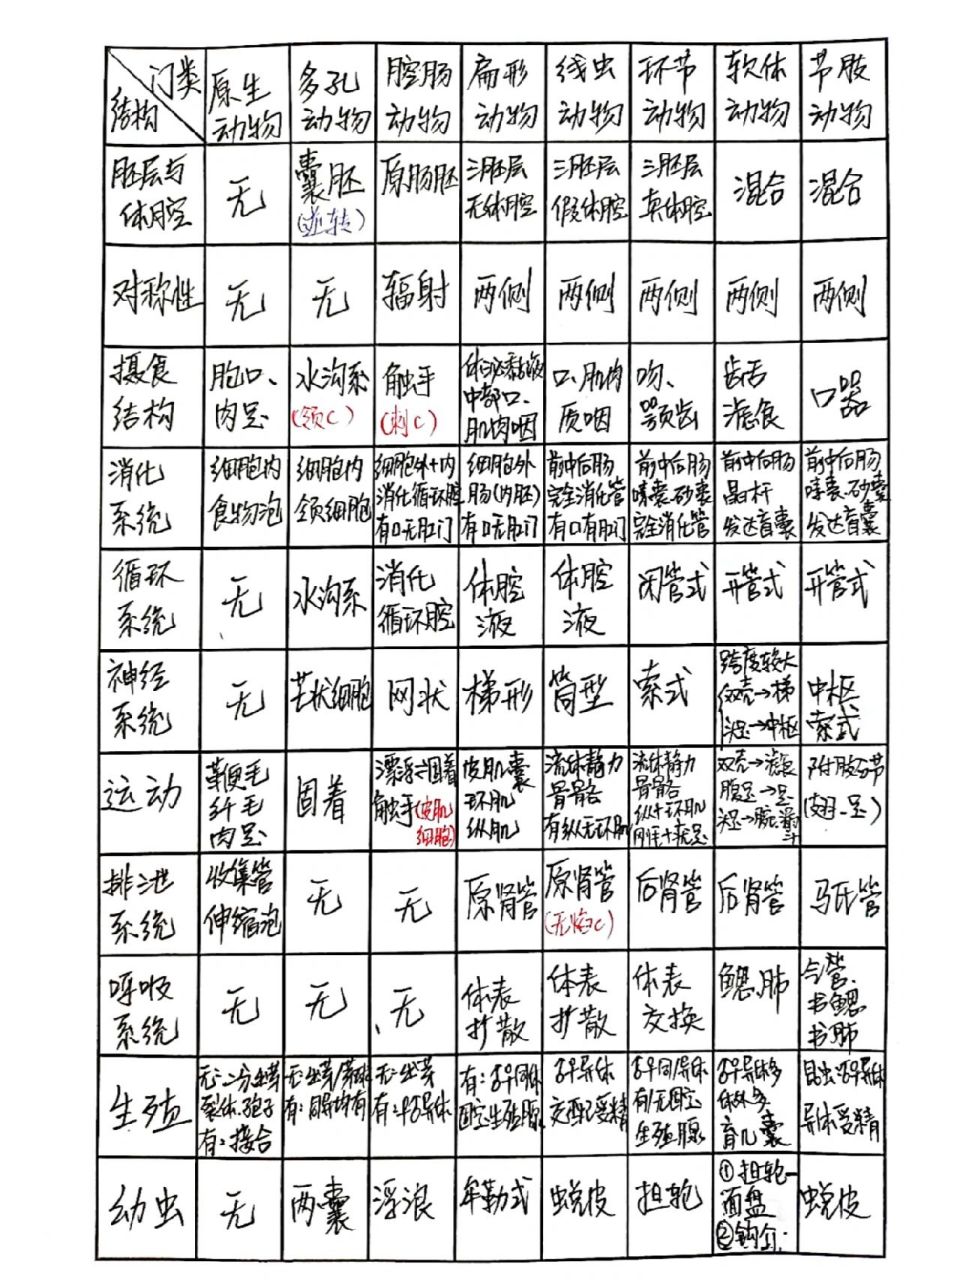 门类 结构 原生动物 多孔动物 腔肠动物 扁形动物 线虫动物 环节动物 软体动物 节肢动物
胚层与体腔 无 囊胚(逆转) 原肠胚 三胚层无体腔 三胚层假体腔 三胚层真体腔 混合 混合
对称性 无 无 辐射 两侧 两侧 两侧 两侧 两侧
摄食结构 胞口、肉足 水沟系(领C) 触手(刺C) 体泌黏液中部口、肌肉咽 口、肌肉质咽 吻、颚齿 齿舌滤食 口器
消化系统 细胞内食物泡 细胞内领细胞 细胞外+内消化循环腔有口无肛门 细胞外肠(内胚)有口无肛门 前中后肠完全消化管有口有肛门 前中后肠嗉囊、砂囊完全消化管 前中后肠晶杆发达盲囊 前中后肠嗉囊、砂囊发达盲囊
循环系统 无 水沟系 消化循环腔 体腔液 体腔液 闭管式 开管式 开管式
神经系统 无 芒状细胞 网状 梯形 筒型 索式 跨度较大双壳→梯头足→中枢 中枢索式
运动 鞭毛纤毛肉足 固着 漂浮→固着触手(皮肌细胞) 皮肌囊环肌纵肌 流体静力骨骼有纵无环肌 流体静力骨骼纵+环肌刚毛+疣足 双壳→腹足→足头足→ 附肢分节(翅、足)
排泄系统 收集管伸缩泡 无 无 原肾管 原肾管(无焰C) 后肾管 后肾管 马氏管
呼吸系统 无 无 无 体表扩散 体表扩散 体表交换 鳃、肺 气管、书鳃书肺
生殖 无:二分出芽裂体、孢子有:接合 无:出芽/芽球有:同异均有 无:出芽有:雌雄异体 有:雌雄同体固定生殖腺 雌雄异体交配受精 雌雄同/异体有/无固定生殖腺 雌雄异体多体外受育儿囊 昆虫:雌雄异体异体受精
幼虫 无 两囊 浮浪 牟勒式 蜕皮 担轮 ①担轮—面盘②钩介 蜕皮